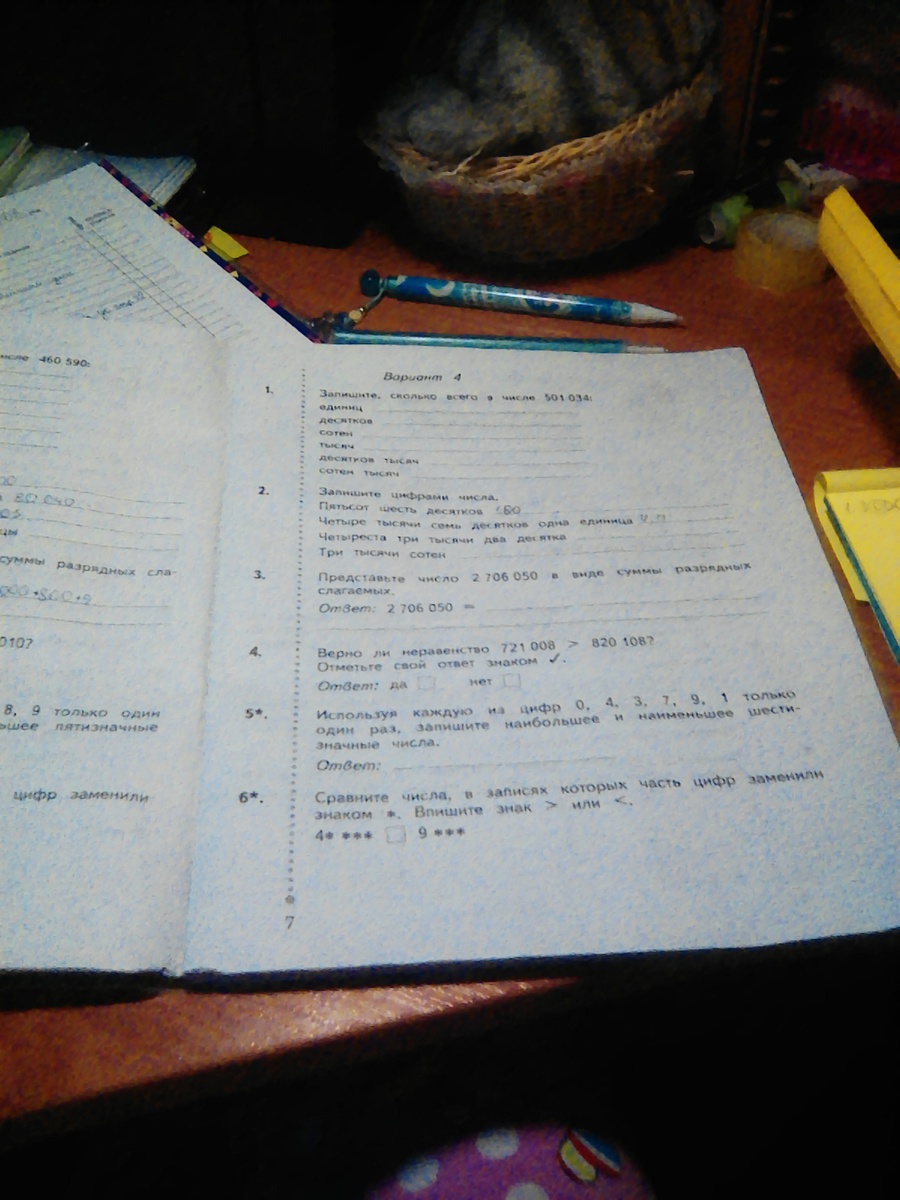 числе 460 590:
80 040
цы
суммы разрядных сла-
010?
8, 9 только один
ьшее пятизначные
цифр заменили
Вариант 4
1. Запишите, сколько всего в числе 501 034:
единиц
десятков
сотен
тысяч
десятков тысяч
сотен тысяч
2. Запишите цифрами числа.
Пятьсот шесть десятков
Четыре тысячи семь десятков одна единица
Четыреста три тысячи два десятка
Три тысячи сотен
3. Представьте число 2 706 050 в виде суммы разрядных
слагаемых.
Ответ: 2 706 050 =
4. Верно ли неравенство 721 008 > 820 108?
Отметьте свой ответ знаком ✓.
Ответ: да нет
5*. Используя каждую из цифр 0, 4, 3, 7, 9, 1 только
один раз, запишите наибольшее и наименьшее шести-
значные числа.
Ответ:
6*. Сравните числа, в записях которых часть цифр заменили
знаком *. Впишите знак > или <.
4* *** 9 ***
7